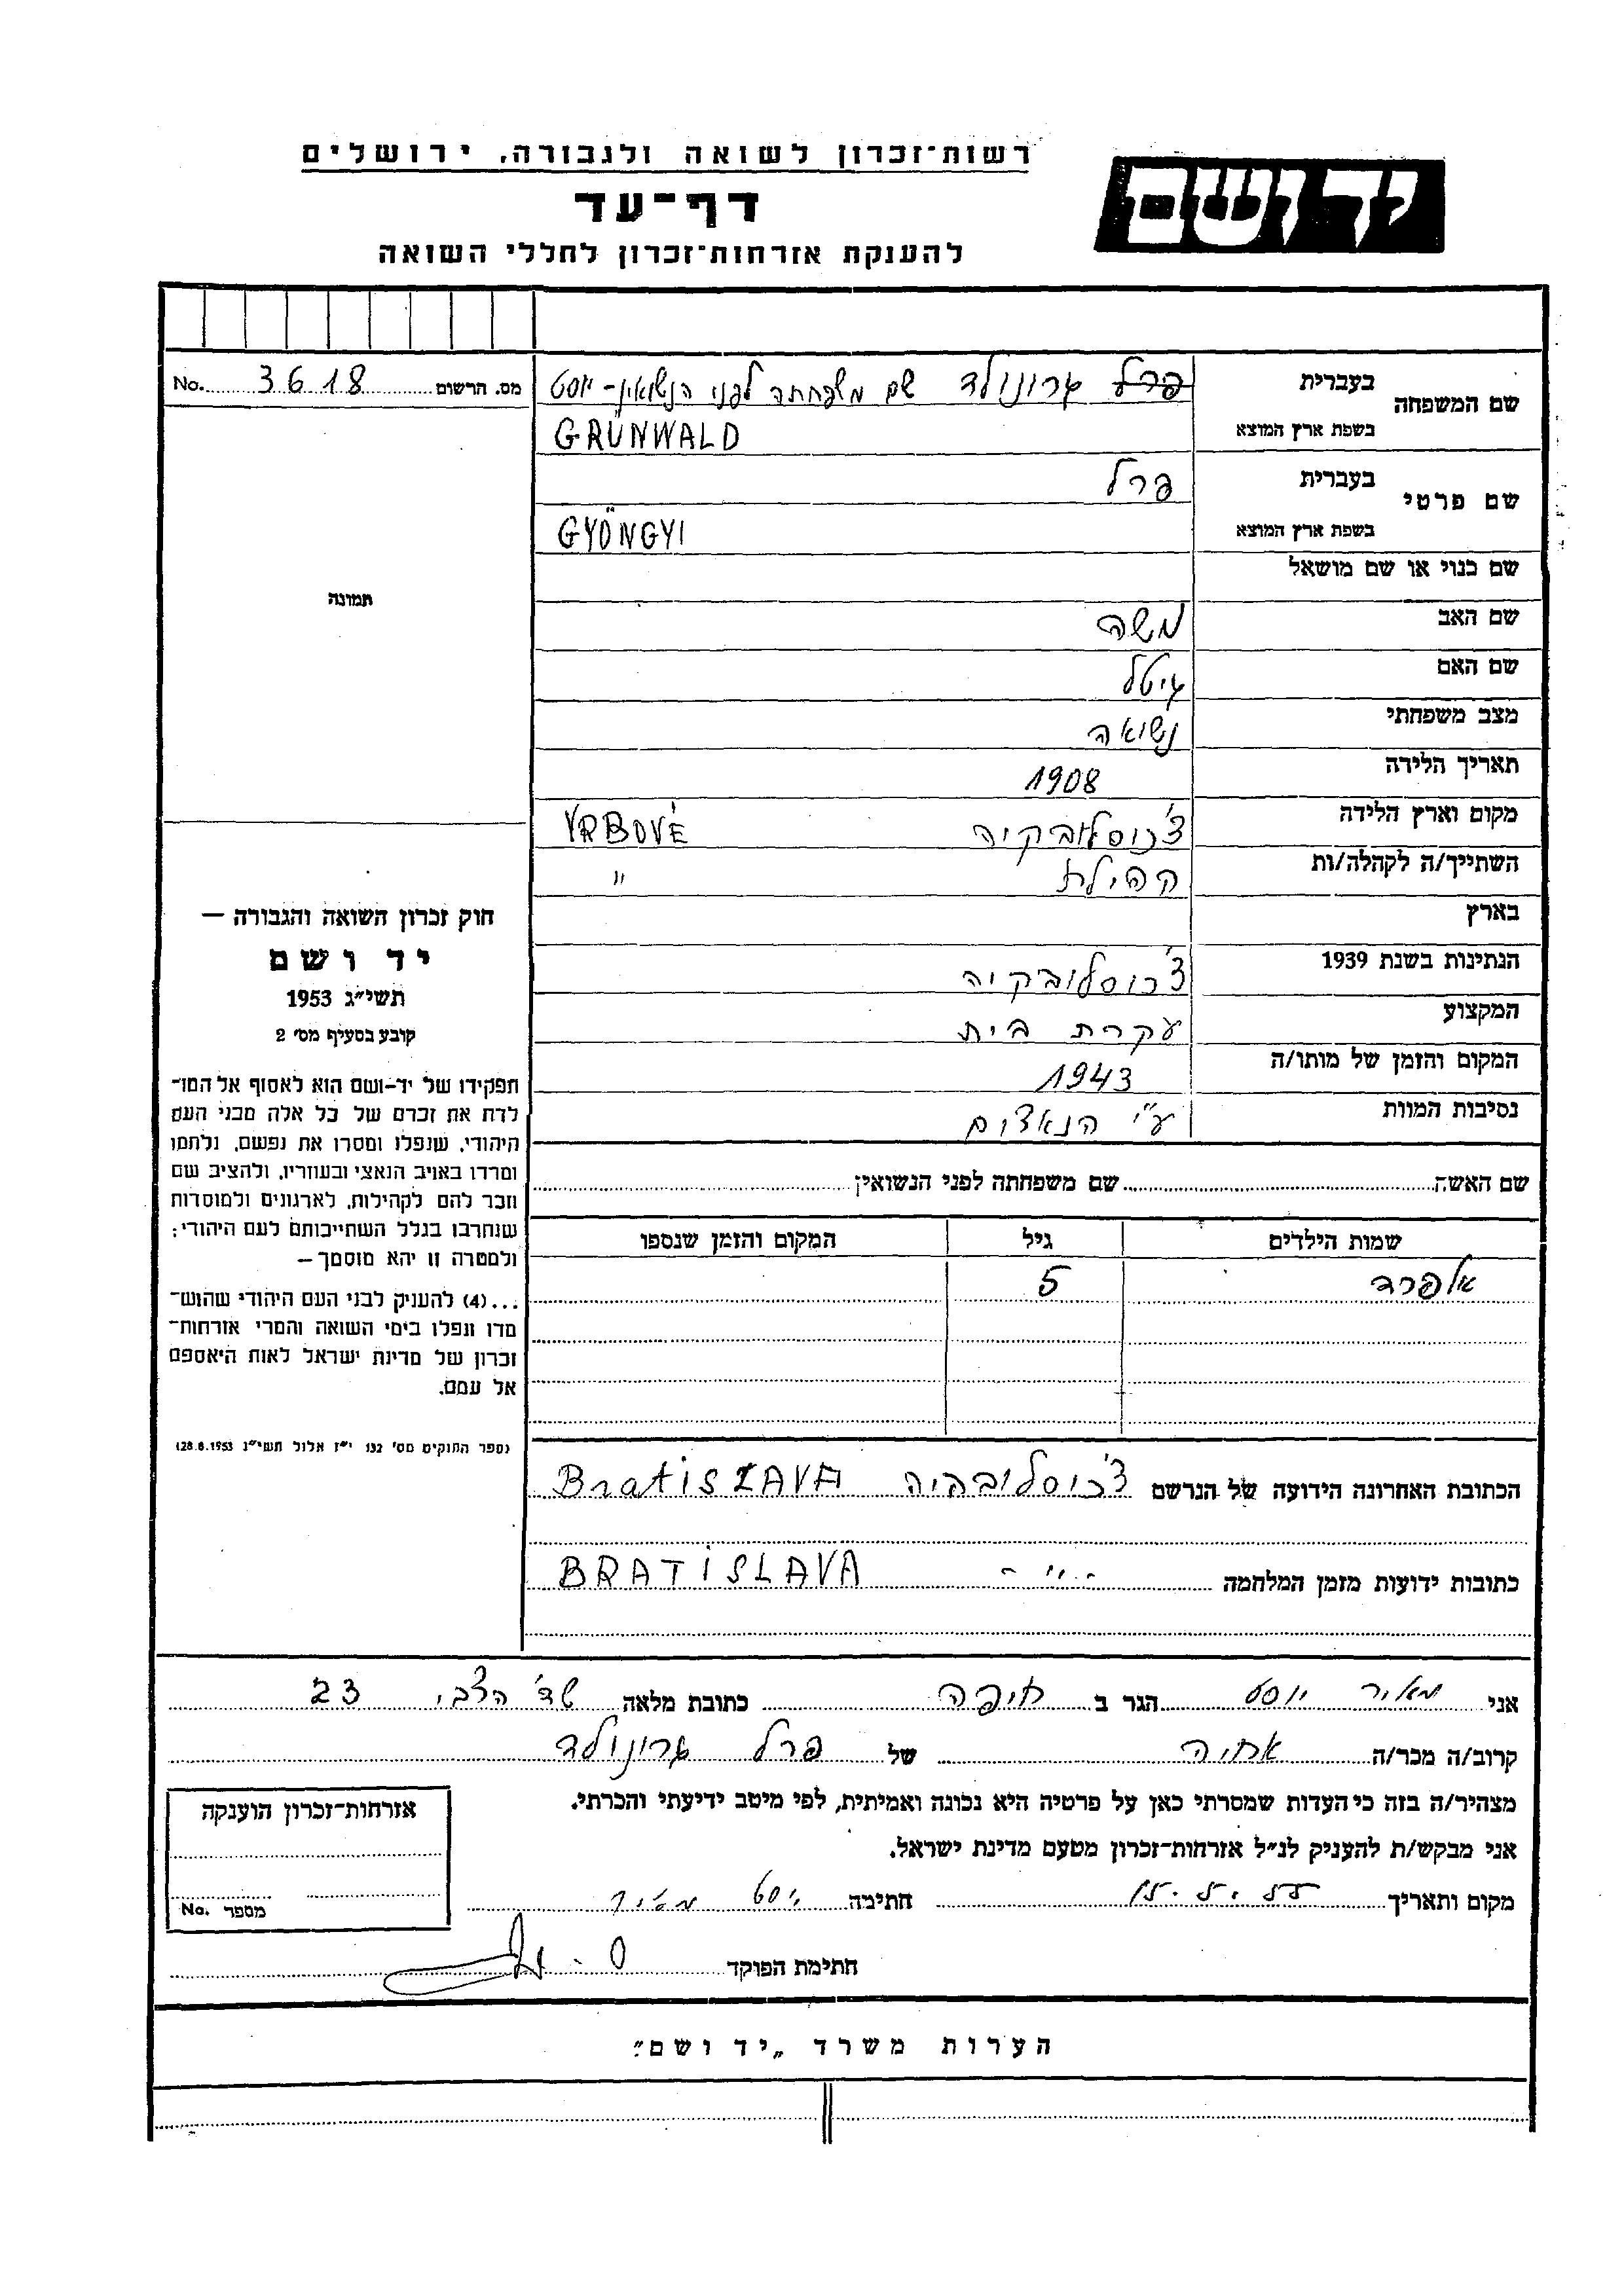 רשות-זכרון לשואה ולגבורה, ירושלים
יד ושם
דף-עד
להענקת אזרחות-זכרון לחללי השואה
מס. הרשום 3618 No.
שם המשפחה
בעברית
פרל גרונולד שם משפחתה לפני הנשואין - יוסט
בשפת ארץ המוצא
GRÜNWALD
שם פרטי
בעברית
פרל
בשפת ארץ המוצא
GYÖNGYI
שם כנוי או שם מושאל
שם האב משה
שם האם גיטל
מצב משפחתי נשואה
תאריך הלידה 1908
מקום וארץ הלידה צ'כוסלובקיה VRBOVÉ
השתייך/ה לקהלה/ות קהילת "
בארץ
הנתינות בשנת 1939 צ'כוסלובקיה
המקצוע עקרת בית
המקום והזמן של מותו/ה 1943
נסיבות המוות ע"י הנאצים
שם האשה שם משפחתה לפני הנשואין
שמות הילדים גיל המקום והזמן שנספו
אלפרד 5
הכתובת האחרונה הידועה של הנרשם צ'כוסלובקיה BratiSLAVA
כתובות ידועות מזמן המלחמה - " - BRATiSLAVA
תמונה
חוק זכרון השואה והגבורה —
יד ושם
תשי״ג 1953
קובע בסעיף מס׳ 2
תפקידו של יד-ושם הוא לאסוף אל המו-
לדת את זכרם של כל אלה מבני העם
היהודי, שנפלו ומסרו את נפשם, נלחמו
ומרדו באויב הנאצי ובעוזריו, ולהציב שם
וזכר להם לקהילות, לארגונים ולמוסדות
שנחרבו בגלל השתייכותם לעם היהודי;
ולמטרה זו יהא מוסמך —
...(4) להעניק לבני העם היהודי שהוש-
מדו ונפלו בימי השואה והמרי אזרחות-
זכרון של מדינת ישראל לאות היאספם
אל עמם.
(ספר החוקים מס׳ 132 י״ז אלול תשי״ג 28.8.1953)
אני מאיר יוסט הגר ב חיפה כתובת מלאה שד' הצבי 23
קרוב/ה מכר/ה אחיה של פרל גרונולד
מצהיר/ה בזה כי העדות שמסרתי כאן על פרטיה היא נכונה ואמיתית, לפי מיטב ידיעתי והכרתי.
אני מבקש/ת להעניק לנ״ל אזרחות-זכרון מטעם מדינת ישראל.
מקום ותאריך חתימה יוסט מאיר
חתימת הפוקד
אזרחות-זכרון הוענקה
מספר No.
הערות משרד „יד ושם״